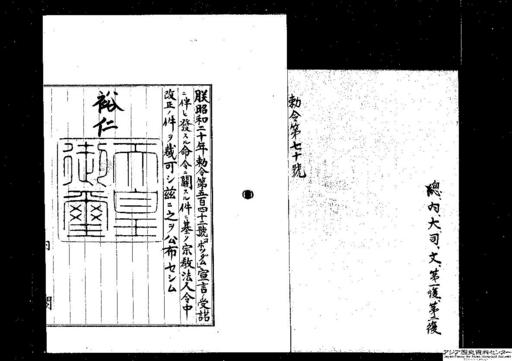 勅令第七十號
總、內、大、司、文、第一復、第二復
朕昭和二十年勅令第五百四十二號「ポツダム」宣言ノ受諾
ニ伴ヒ發スル命令ニ關スル件ニ基ク宗敎法人令中
改正ノ件ヲ裁可シ茲ニ之ヲ公布セシム
裕仁
天皇
御璽
アジア歴史資料センター